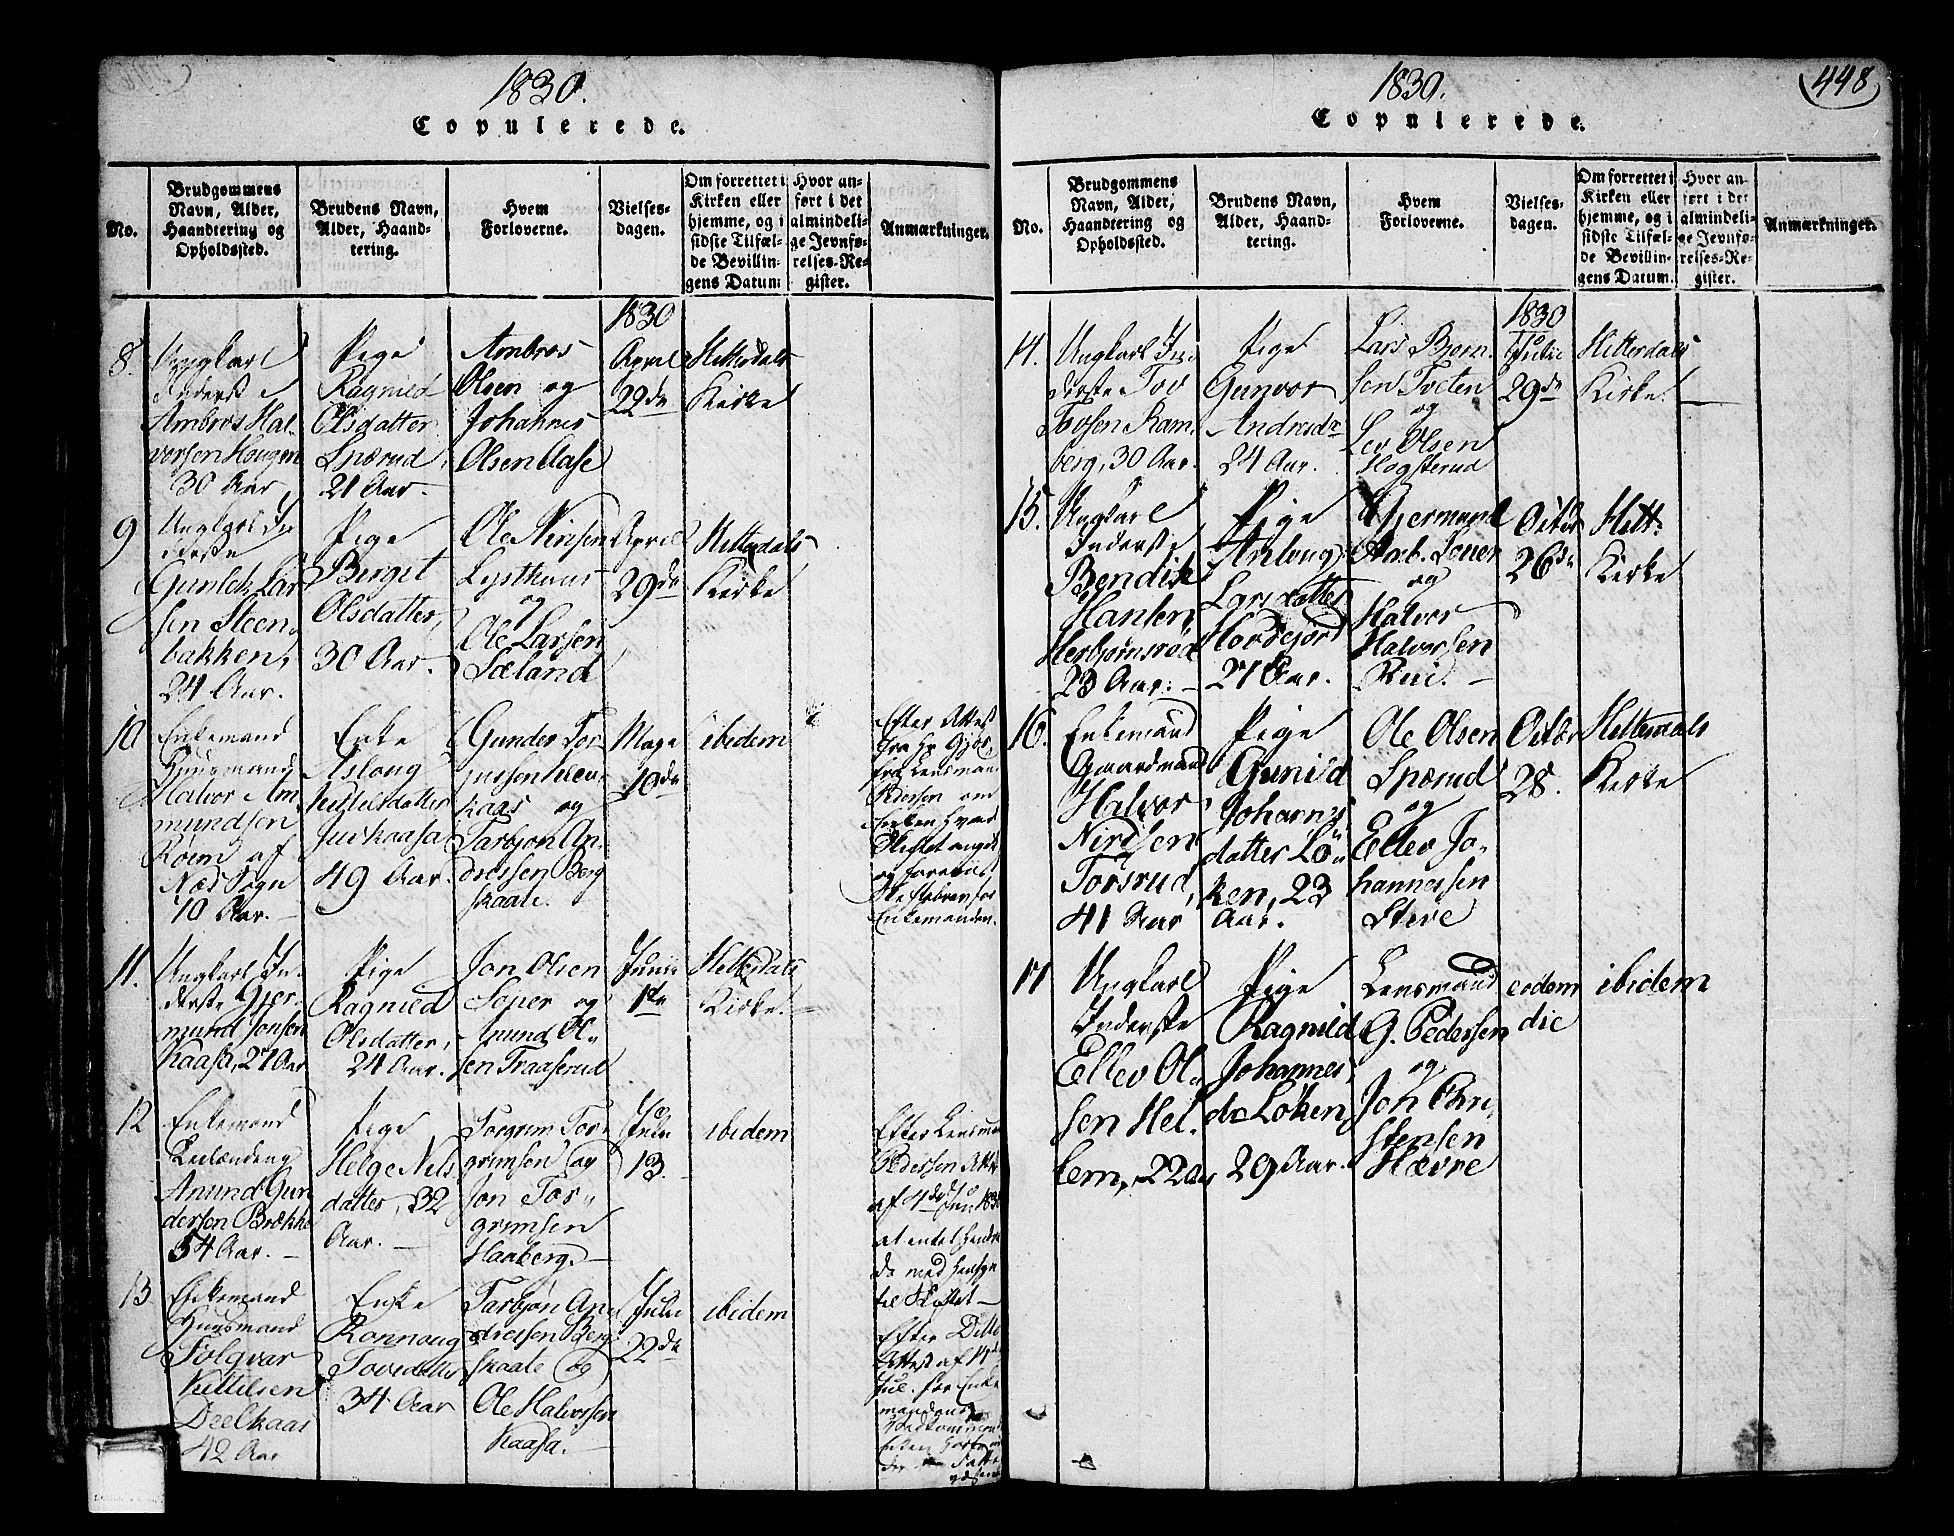 1830.
Copulerede.
No.
Brudgommens
Navn, Alder,
Haandtering og
Opholdssted.
Brudens Navn,
Alder, Haand-
tering.
Hvem
Forloverne.
Vielses-
dagen.
Om forrettet i
Kirken eller
hjemme, og i
sidste Tilfæl-
de Bevillin-
gens Datum:
Hvor an-
ført i det
almindeli-
ge Jevnfø-
relses-Re-
gister.
Anmærkninger.
8.
Ungkarl
Inderste
Ambros Hal-
vorsen Haugen
30 Aar,
Pige
Ragnild
Olsdatter
Spærud,
21 Aar.
Ambros
Olsen og
Johannes
Olsen Aase
1830
April
22de
Hitterdals
Kirke
9
Ungkarl In
derste
Gunlek Lar
sen Steen-
bakken,
24 Aar.
Pige
Berget
Olsdatter,
30 Aar.
Ole Nirisen
Lysthaus
og
Ole Larsen
Sæland
April
29de
Hitterdals
Kirke
10
Enkemand
Huusmand
Halvor Am-
mundsen
af
Næs Sogn
70 Aar.
Enke
Aslaug
Kittilsdatter
Juvkaasa
49 Aar.
Gunder Tor
kaas og
Tarbjøn An-
dressen Berg
skaale.
Maye
10de
ibidem
Efter Attest
fra
fra Lensmand
Pedersen om
Enken hvad
Skiftet angik
og foreviist
Skiftebrev for
Enkemanden.
11.
Ungkarl In-
derste Gjer-
mund Jonsen
Kaasa, 27 Aar
Pige
Ragnild
Olsdatter,
24 Aar.
Jon Olsen
Søper og
Amund Ol-
sen Traaserud
Junii
1ste
Hitterdals
Kirke.
12
Enkemand
Leilænding
Anund Gun
dersen Brække
54 Aar.
Pige
Helge Nils
datter, 32
Aar.
Torgrim Tor
grimsen og
Jon Tor-
grimsen
Haaberg.
Julii
13.
ibidem
Efter Lensmand
Pedersen Attest
af 4de Juni 1830
at intet
med Hensyn
til Skiftet
13
Enkemand
Huusmand
Folqvar
Kittilsen
Deelkaas
42 Aar
Enke
Ronnoug
Tovsdatter
34 Aar
Tarbjøn An
dressen Berg
skaale og
Ole Halvorsen
Kaasa.
Julii
22de
ibidem
Efter Ditto
Attest af 14de
Jul. for Enke
manden
Enken
1830.
448
Copulerede.
No.
Brudgommens
Navn, Alder,
Haandtering og
Opholdssted.
Brudens Navn,
Alder, Haand-
tering.
Hvem
Forloverne.
Vielses-
dagen.
Om forrettet i
Kirken eller
hjemme, og i
sidste Tilfæl-
de Bevillin-
gens Datum.
Hvor an-
ført i det
almindeli-
ge Jevnfø-
relses-Re-
gister.
Anmærkninger.
14.
Ungkarl In
derste Tov
Tovsen Ram
berg, 30 Aar.
Pige
Gunvor
Andresdr
24 Aar.
Lars Bjørn-
sen Tveten
og
Lev Olsen
Høgsterud
1830
Julii
29de
Hitterdals
Kirke.
15.
Ungkarl
Inderste
Bendik
Hansen
Herbjørnsrød
23 Aar.
Pige
Anlaug
Larsdatter
Hordejord
27 Aar.
Gjermund
Amb. Louer
og
Halvor
Halvorsen
Rui.
Octbr
26de
Hitt.
Kirke
16.
Enkemand
Gaardmand
Halvor
Nirisen
Torsrud,
41 Aar
Pige
Gunild
Johannes
datter Lö-
ken, 23
Aar.
Ole Olsen
Spærud
og
Ellev Jo-
hannessen
Steve
Octbr
28.
Hitterdals
Kirke
17
Ungkarl
Inderste
Ellev Ol-
sen Hel-
lem, 22 Aar
Pige
Ragnild
Johannes-
dr Løken
29 Aar.
Lensmand
G. Pedersen
og
Jon Chri-
stensen
Hævre
eodem
die
ibidem